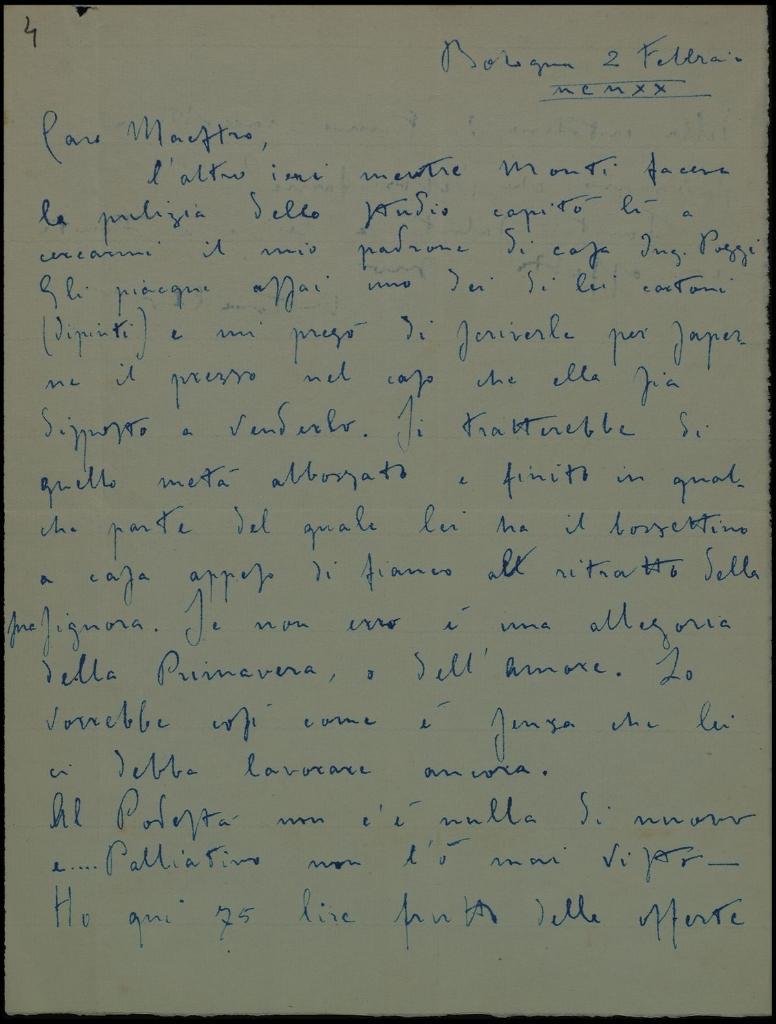 4
Bologna 2 Febbraio
MCMXX
Caro Maestro,
l'altro ieri mentre Monti faceva
la pulizia dello studio capitò lì a
cercarmi il mio padrone di casa Ing. Poggi
Gli piacque assai uno dei di lei cartoni
(dipinti) e mi pregò di scriverle per saper-
ne il prezzo nel caso che ella sia
disposto a venderlo. Si tratterebbe di
quello metà abbozzato e finito in qual-
che parte del quale lei ha il bozzettino
a casa appeso di fianco al ritratto della
sua signora. Se non erro è una allegoria
della Primavera, o dell'Amore. Lo
vorrebbe così come è senza che lei
ci debba lavorare ancora.
Al Podestà non c'è nulla di nuovo
e.... Palliatino non l'ò mai visto —
Ho qui 75 lire frutto delle offerte